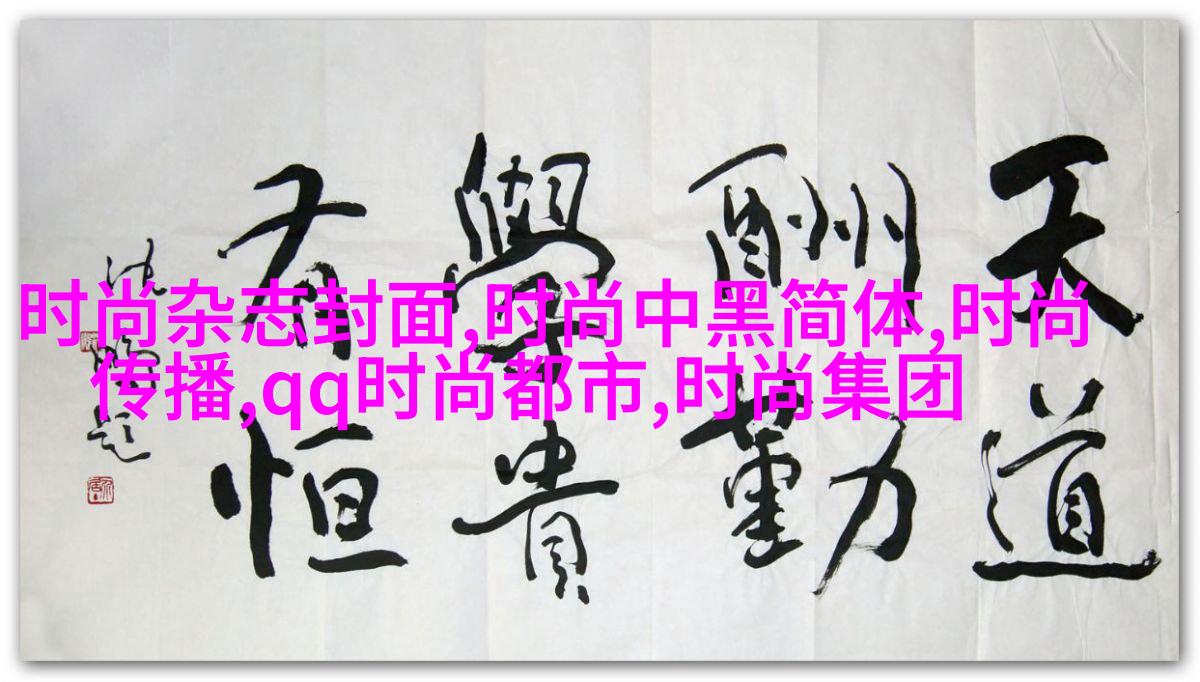 时尚杂志封面,时尚中黑简体,时尚
传播,qq时尚都市,时尚集团
天道
酬勤
學貴
有恒
沈鹏题